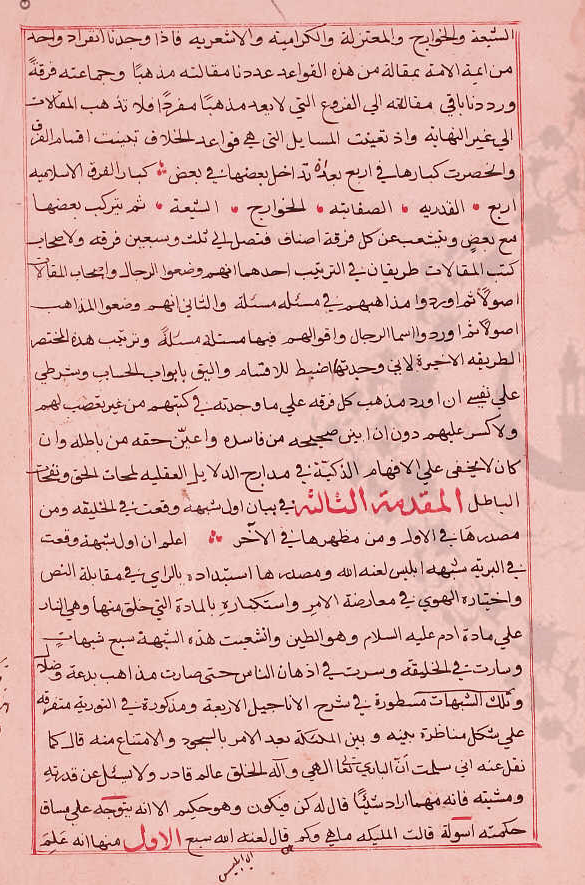 الشيعة والخوارج والمعتزلة والكرامية والاشعريه فاذا وجدنا انفراد واحد
من ايمة الامة بمقالة من هذه القواعد عددنا مقالته مذهبًا وجماعته فرقةً
ورددنا باقي مقالته الي الفروع التي لا يعد مذهبًا مفردًا فلا تذهب المقالات
الي غير النهايه واذ تعينت المسايل التي هي قواعد الخلاف تبينت اقسام الفرق
وانحصرت كبارها في اربع بعد ان تداخل بعضها في بعض كبار الفرق الاسلاميه
اربع القدريه الصفاتيه الخوارج الشيعة ثم يتركب بعضها
مع بعض ويتشعب عن كل فرقة اصناف فتصل الي ثلث وسبعين فرقه ولاصحاب
كتب المقالات طريقان في الترتيب احدهما انهم وضعوا الرجال واصحاب المقالات
اصولاً ثم اوردوا مذاهبهم في مسئله مسئلة والثاني انهم وضعوا المذاهب
اصولاً ثم اوردوا اسما الرجال واقوالهم فيها مسئلة مسئلةً وترتيب هذه المختصر
الطريقه الاخيرة لاني وجدتها اضبط للاقسام واليق بابواب الحساب وشرطي
علي نفسي ان اورد مذهب كل فرقه علي ما وجدته في كتبهم من غير تعصب لهم
ولا كسر عليهم دون ان ابين صحيحه من فاسده واعيّن حقه من باطله وان
كان لا يخفي علي الافهام الذكيّة في مدارج الدلايل العقليه لمحات الحق ونفحات
الباطل المقدمة الثالثه في بيان اول شبهه وقعت في الخليقه ومن
مصدرها في الاول ومن مظهرها في الآخر اعلم ان اول شبهة وقعت
في البريّه شبهه ابليس لعنه الله ومصدرها استبداده بالراي في مقابلة النص
واختياره الهوي في معارضة الامر واستكباره بالمادة التي خلق منها وهي النار
علي مادة ادم عليه السلام وهو الطين وانشعبت هذه الشبهة سبع شبهاتٍ
وسارت في الخليقه وسرت في اذهان الناس حتى صارت مذاهب بدعة وضلا
وتلك الشبهات مسطورة في شرح الاناجيل الاربعة ومذكورة في التورية متفرقه
علي شكل مناظرة بينه و بين الملئكة بعد الامر بالسجود والامتناع منه قال كما
نقل عنه اني سلمت أن الباري تعا الهي وآله الخلق عالم قادر ولا يسئل عن قدرته
ومشيته فانه مهما اراد شيئًا قال له كن فيكون وهو حكيم الا انه يتوجه علي مساق
حكمته اسولة قالت المليكه ما هي وكم قال لعنه الله سبع الاول منها انه عَلِمَ
اي ابليس